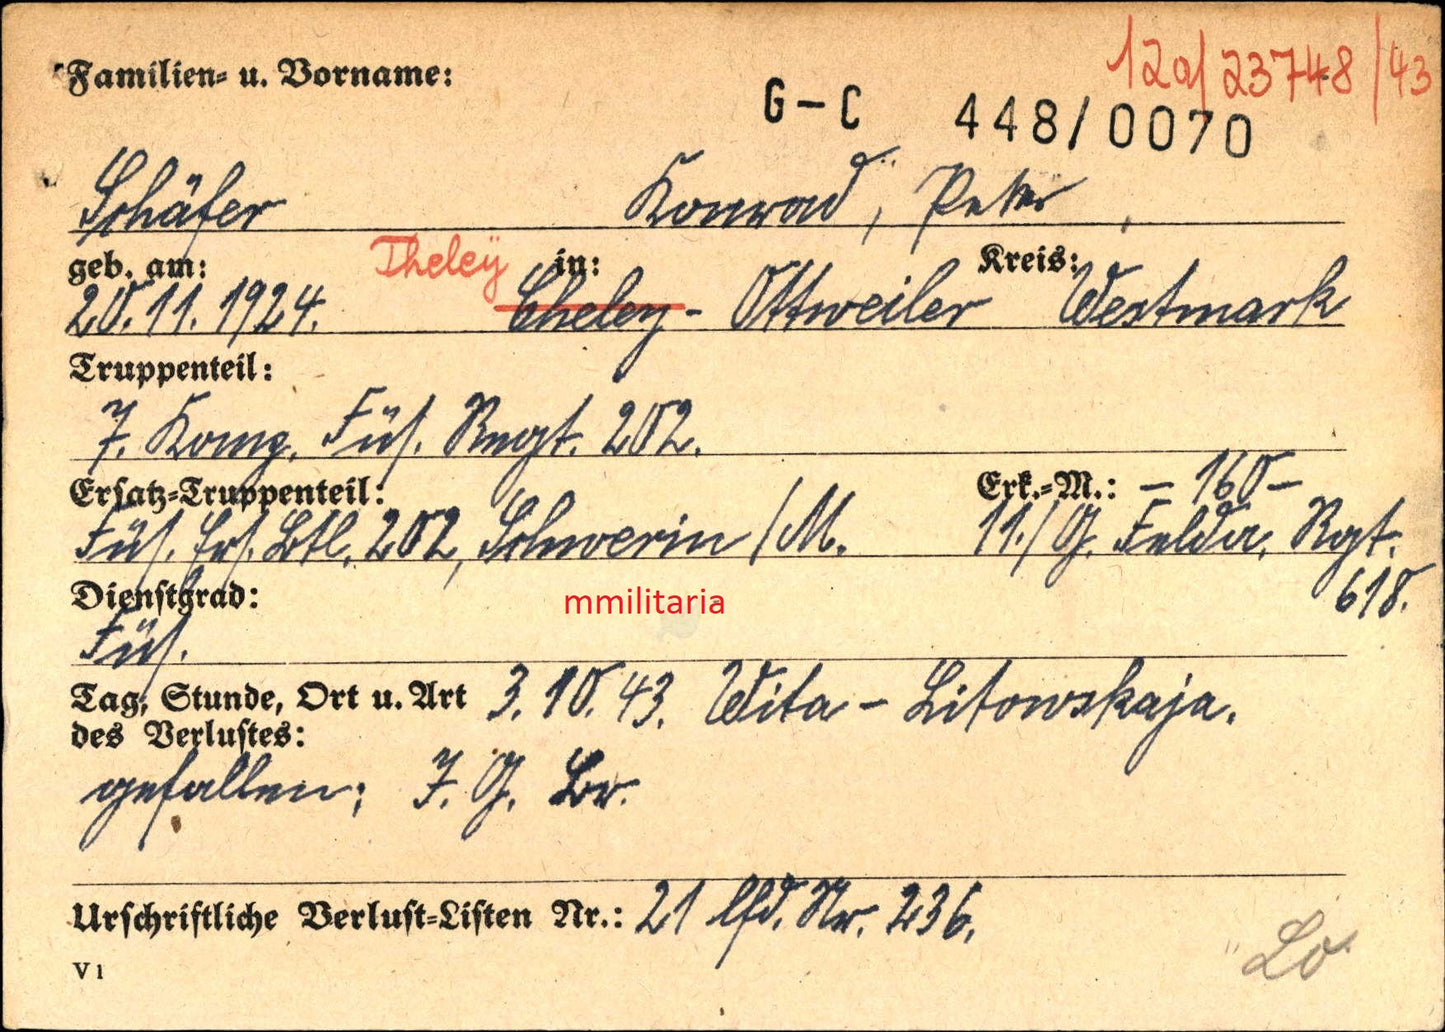 12a/23748/43
Familien- u. Vorname:
G-C 448/0070
Schäfer Konrad, Peter,
geb. am: Theley in: Kreis:
20.11.1924. Cheley - Ottweiler Westmark
Truppenteil:
7. Komp. Füs. Regt. 202.
Ersatz-Truppenteil: Erk.-M.: – 160 –
Füs. Ers. Btl. 202, Schwerin / M. 11./G. Felda. Rgt.
618.
Dienstgrad:
mmilitaria
Füs.
Tag, Stunde, Ort u. Art 3.10.43. Wita - Litowskaja.
des Verlustes:
gefallen; I. G. Br.
Urschriftliche Verlust-Listen Nr.: 21 lfd. Nr. 236.
V 1